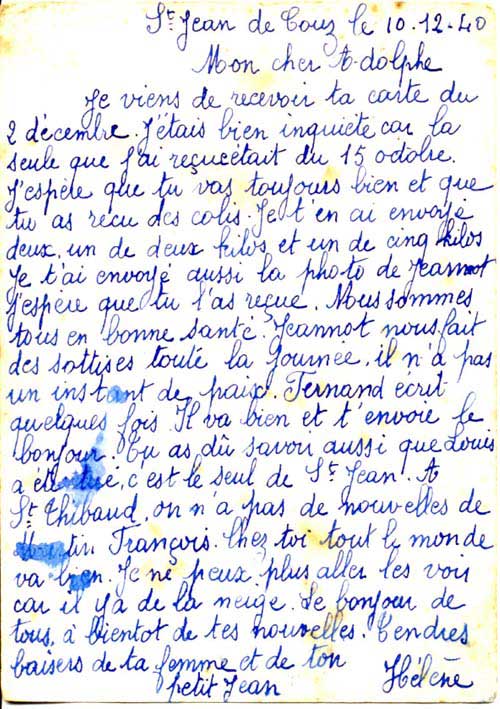 St Jean de Couz le 10.12.40
Mon cher Adolphe
Je viens de recevoir ta carte du
2 décembre. J'étais bien inquiète car la
seule que j'ai reçue c'était du 15 octobre.
J'espère que tu vas toujours bien et que
tu as reçu des colis. Je t'en ai envoyé
deux, un de deux kilos et un de cinq kilos
Je t'ai envoyé aussi la photo de Jeannot
j'espère que tu l'as reçue. Nous sommes
tous en bonne santé. Jeannot nous fait
des sottises toute la journée, il n'a pas
un instant de paix. Fernand écrit
quelques fois. Il va bien et t'envoie le
bonjour. Tu as dû savoir aussi que Louis
a été tué, c'est le seul de St Jean. A
St Thibaud, on n'a pas de nouvelles de
François. Chez toi tout le monde
va bien. Je ne peux plus aller les voir
car il y'a de la neige. Le bonjour de
tous, à bientot de tes nouvelles. Tendres
baisers de ta femme et de ton
petit Jean Hélène